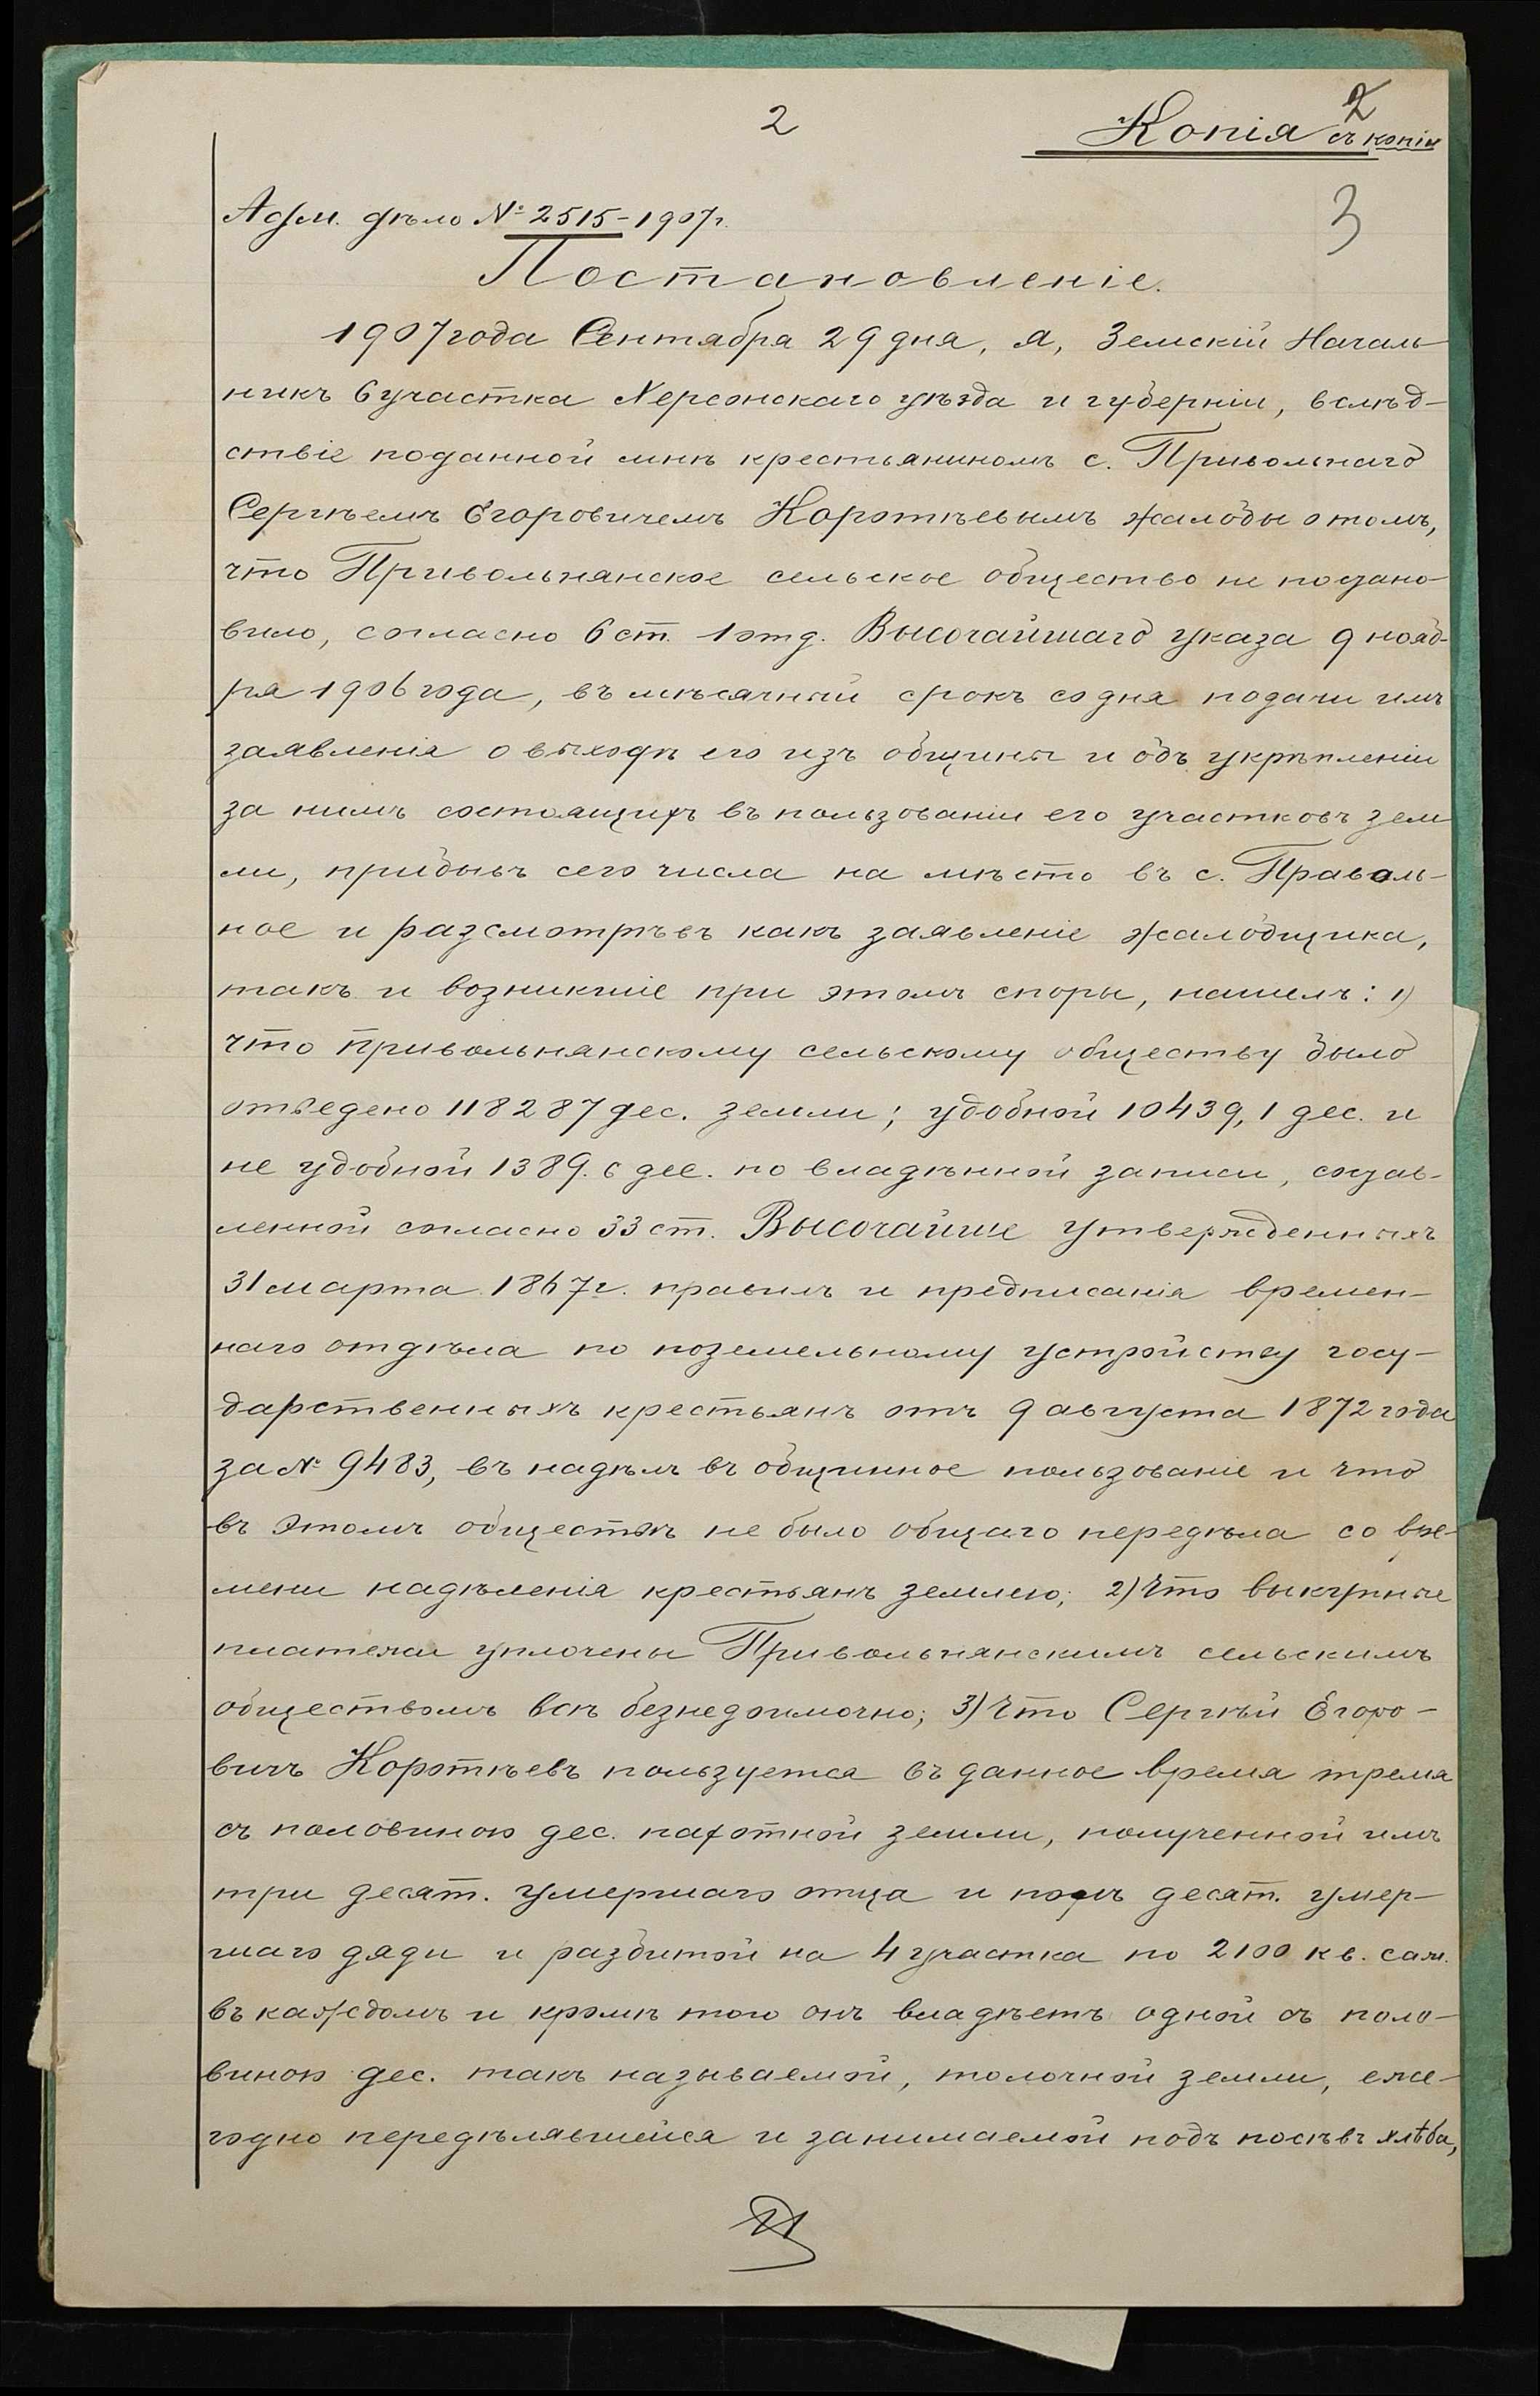 2
2
Копія съ копіи
3
Адм. дѣло № 2515-1907 г.
Постановленіе.
1907 года Сентября 29 дня, я, Земскій Началь-
никъ 6 участка Херсонскаго уѣзда и губерніи, вслѣд-
ствіе поданной мнѣ крестьяниномъ с. Привольнаго
Сергѣемъ Егоровичемъ Коротѣевымъ жалобы о томъ,
что Привольнянское сельское общество не постано-
вило, согласно 6 ст. 1 отд. Высочайшаго указа 9 нояб-
ря 1906 года, въ мѣсячный срокъ со дня подачи имъ
заявленія о выходѣ его изъ общины и объ укрѣпленіи
за нимъ состоящихъ въ пользованіи его участковъ зем
ли, прибывъ сего числа на мѣсто въ с. Праволь-
ное и разсмотрѣвъ какъ заявленіе жалобщика,
такъ и возникшіе при этомъ споры, нашелъ: 1)
что Привольнянскому сельскому обществу было
отведено 118287 дес. земли; удобной 10439,1 дес. и
не удобной 1389.6 дес. по владѣнной записи, состав-
ленной согласно 33 ст. Высочайше утвержденныхъ
31 марта 1867 г. правилъ и предписанія времен-
наго отдѣла по поземельному устройству госу-
дарственныхъ крестьянъ отъ 9 августа 1872 года
за № 9483, въ надѣлъ въ общинное пользованіе и что
въ этомъ обществѣ не было общаго передѣла со вре-
мени надѣленія крестьянъ землею; 2) Что выкупные
платежи уплочены Привольнянскимъ сельскимъ
обществомъ всѣ безнедоимочно; 3) Что Сергѣй Егоро-
вичъ Коротѣевъ пользуется въ данное время тремя
съ половиною дес. пахотной земли, полученной имъ
три десят. умершаго отца и полъ десят. умер-
шаго дяди и разбитой на 4 участка по 2100 кв. саж.
въ каждомъ и кромѣ того онъ владѣетъ одной съ поло-
виною дес. такъ называемой, толочной земли, еже-
годно передѣлявшейся и занимаемой подъ посѣвъ хлѣба,